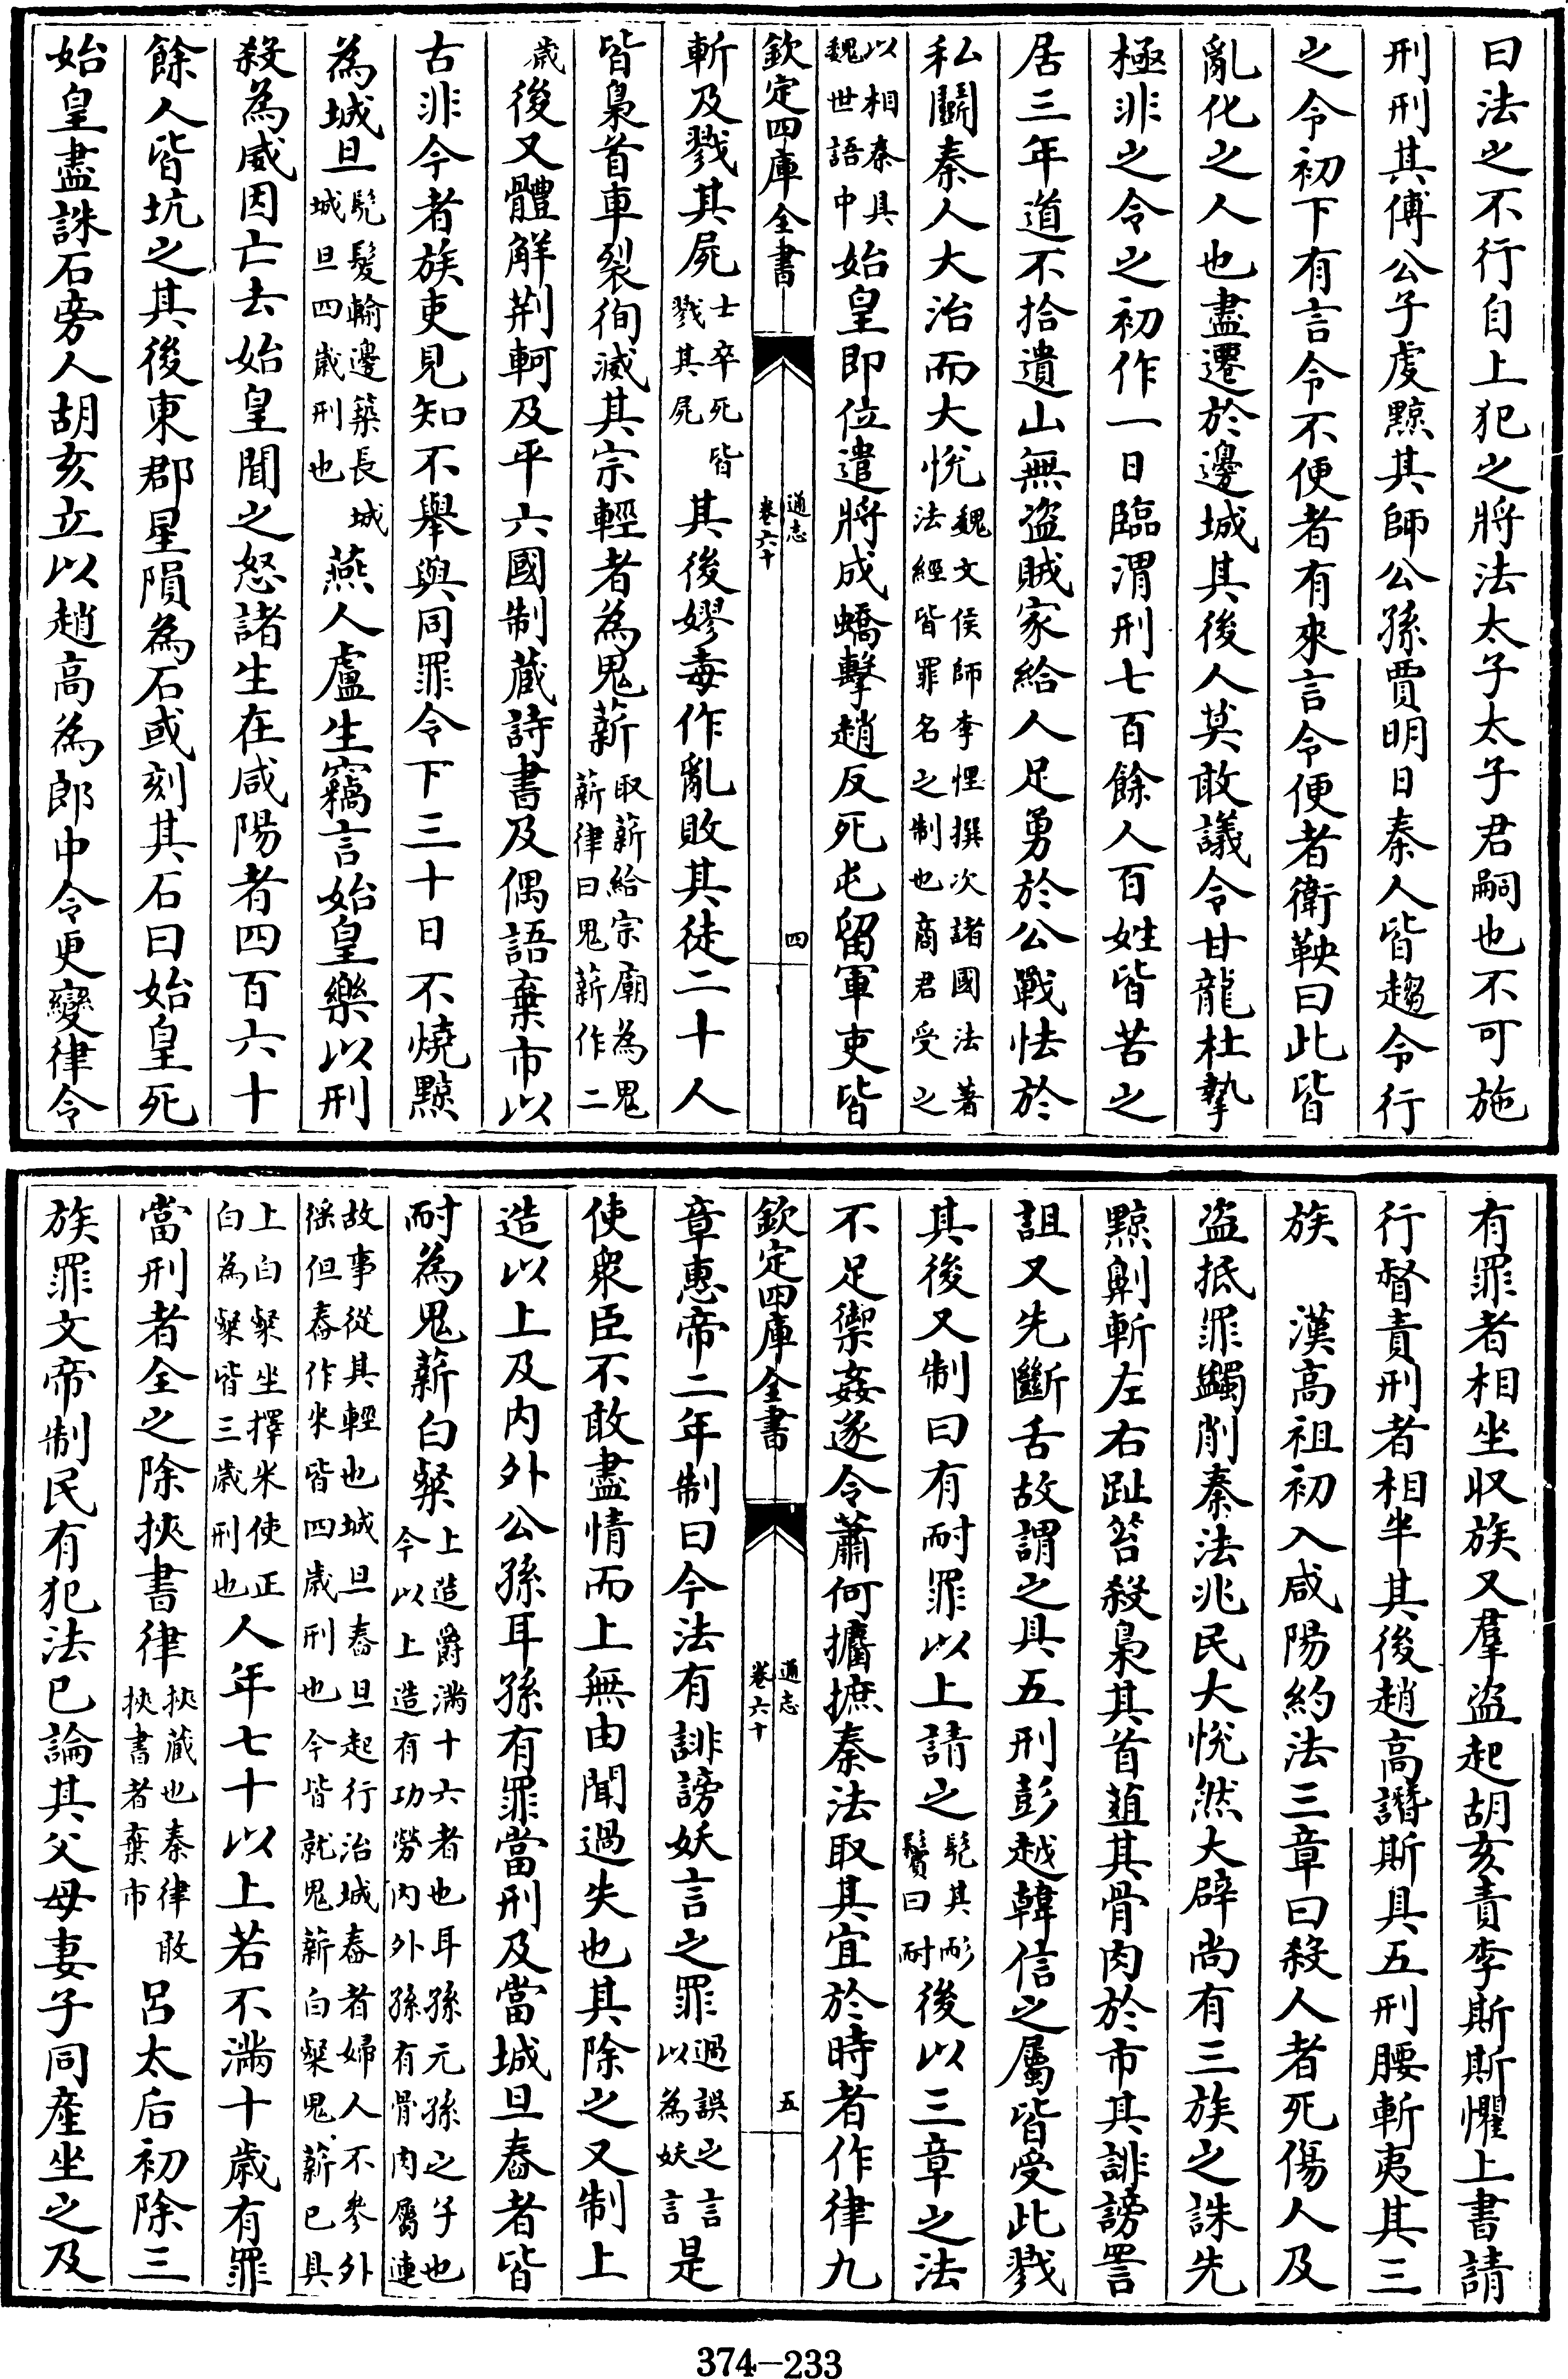 曰法之不行自上犯之將法太子太子君嗣也不可施
刑刑其傅公子虔黥其師公孫賈明日秦人皆趨令行
之令初下有言令不便者有來言令便者衛鞅曰此皆
亂化之人也盡遷於邊城其後人莫敢議令甘龍杜摯
極非之令之初作一日臨渭刑七百餘人百姓皆苦之
居三年道不拾遺山無盜賊家給人足勇於公戰怯於
私鬭秦人大治而大悅魏文侯師李悝撰次諸國法著法經皆罪名之制也商君受之
以相秦具魏世語中始皇即位遣將成蟜擊趙反死屯留軍吏皆
欽定四庫全書 通志 卷六十 四
斬及戮其屍士卒死皆戮其屍其後嫪毐作亂敗其徒二十人
皆梟首車裂徇滅其宗輕者為鬼薪取薪給宗廟為鬼薪律曰鬼薪作二
歲後又體解荆軻及平六國制蔵詩書及偶語棄市以
古非今者族吏見知不舉與同罪令下三十日不燒黥
為城旦髡髮輸邊築長城城旦四歲刑也燕人盧生竊言始皇樂以刑
殺為威因亡去始皇聞之怒諸生在咸陽者四百六十
餘人皆坑之其後東郡星隕為石或刻其石曰始皇死
始皇盡誅石旁人胡亥立以趙高為郎中令更變律令
有罪者相坐收族又羣盜起胡亥責李斯斯懼上書請
行督責刑者相半其後趙高譖斯具五刑腰斬夷其三
族 漢高祖初入咸陽約法三章曰殺人者死傷人及
盜抵罪蠲削秦法兆民大悅然大辟尚有三族之誅先
黥劓斬左右趾笞殺梟其首葅其骨肉於市其誹謗詈
詛又先斷舌故謂之具五刑彭越韓信之屬皆受此戮
其後又制曰有耐罪以上請之髡其耏鬢曰耐後以三章之法
不足禦姦遂令蕭何攟摭秦法取其宜於時者作律九
欽定四庫全書 通志 卷六十 五
章惠帝二年制曰今法有誹謗妖言之罪過誤之言以為妖言是
使衆臣不敢盡情而上無由聞過失也其除之又制上
造以上及内外公孫耳孫有罪當刑及當城旦舂者皆
耐為鬼薪白粲上造爵滿十六者也耳孫元孫之子也今以上造有功勞内外孫有骨肉屬連
故事從其輕也城旦舂旦起行治城舂者婦人不參外徭但舂作米皆四歲刑也今皆就鬼薪白粲鬼薪已具
上白粲坐擇米使正白為粲皆三歲刑也人年七十以上若不滿十歲有罪
當刑者全之除挾書律挾蔵也秦律敢挾書者棄市呂太后初除三
族罪文帝制民有犯法已論其父母妻子同產坐之及
374—233